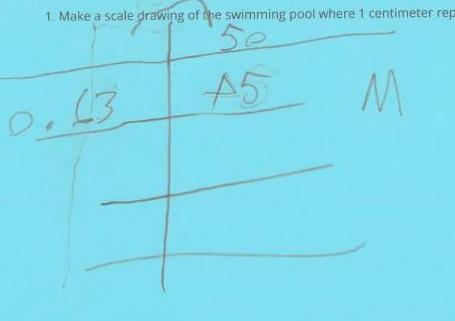 1. Make a scale drawing of the swimming pool where 1 centimeter rep
50
0.
M